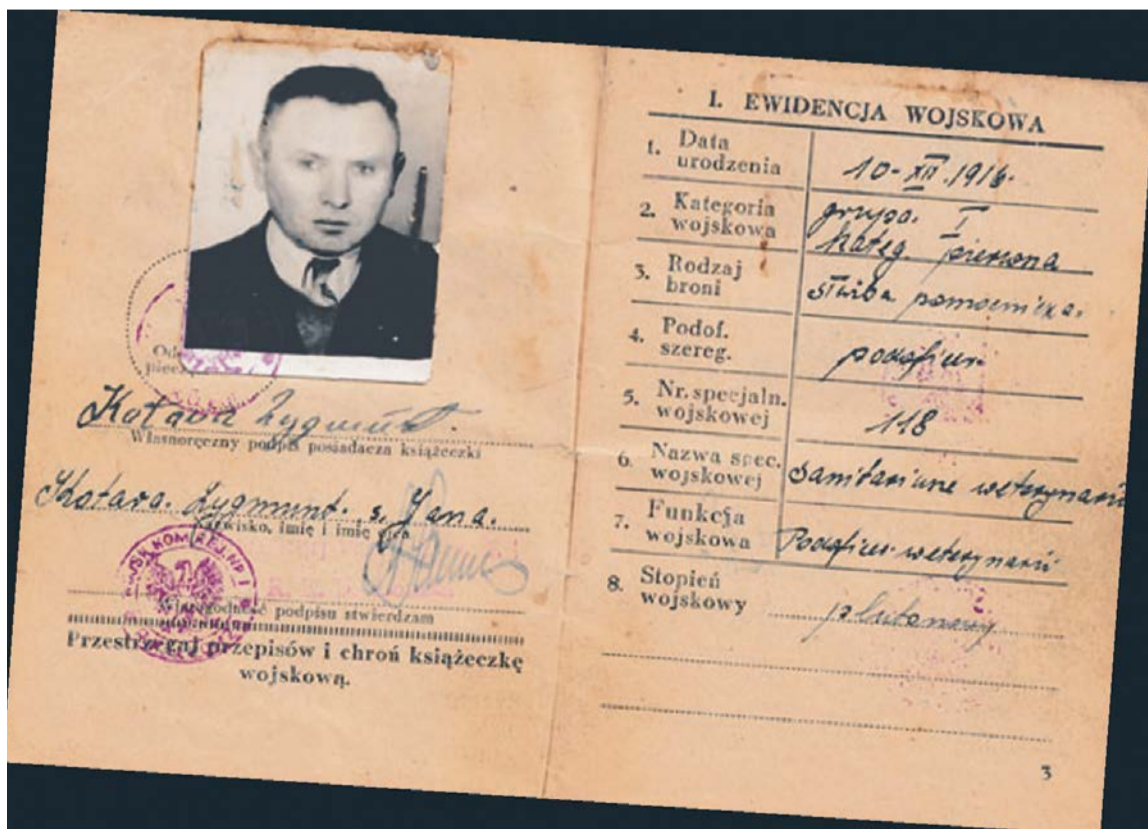 Kotara Zygmunt.
Własnoręczny podpis posiadacza książeczki
Kotara. Zygmunt. s. Jana.
Nazwisko, imię i imię ojca
Wiarogodność podpisu stwierdzam
Przestrzegaj przepisów i chroń książeczkę
wojskową.
I. EWIDENCJA WOJSKOWA
1. Data urodzenia 10-XII.1916.
2. Kategoria wojskowa grupa. I
kateg pierwsza
3. Rodzaj broni służba pomocnicza.
4. Podof. szereg. podoficer.
5. Nr. specjaln. wojskowej 118
6. Nazwa spec. wojskowej Sanitariusz weterynarii
7. Funkcja wojskowa Podoficer weterynarii
8. Stopień wojskowy plutonowy
3